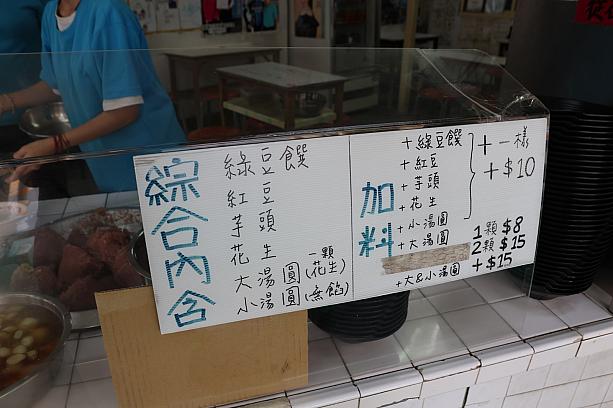 綜合內含
綠豆饌
紅豆
芋頭
花生
大湯圓 一顆(花生)
小湯圓(無餡)
加料
+綠豆饌
+紅豆
+芋頭
+花生
+小湯圓
+一樣
+$10
+大湯圓
1顆$8
2顆$15
+大&小湯圓
+$15